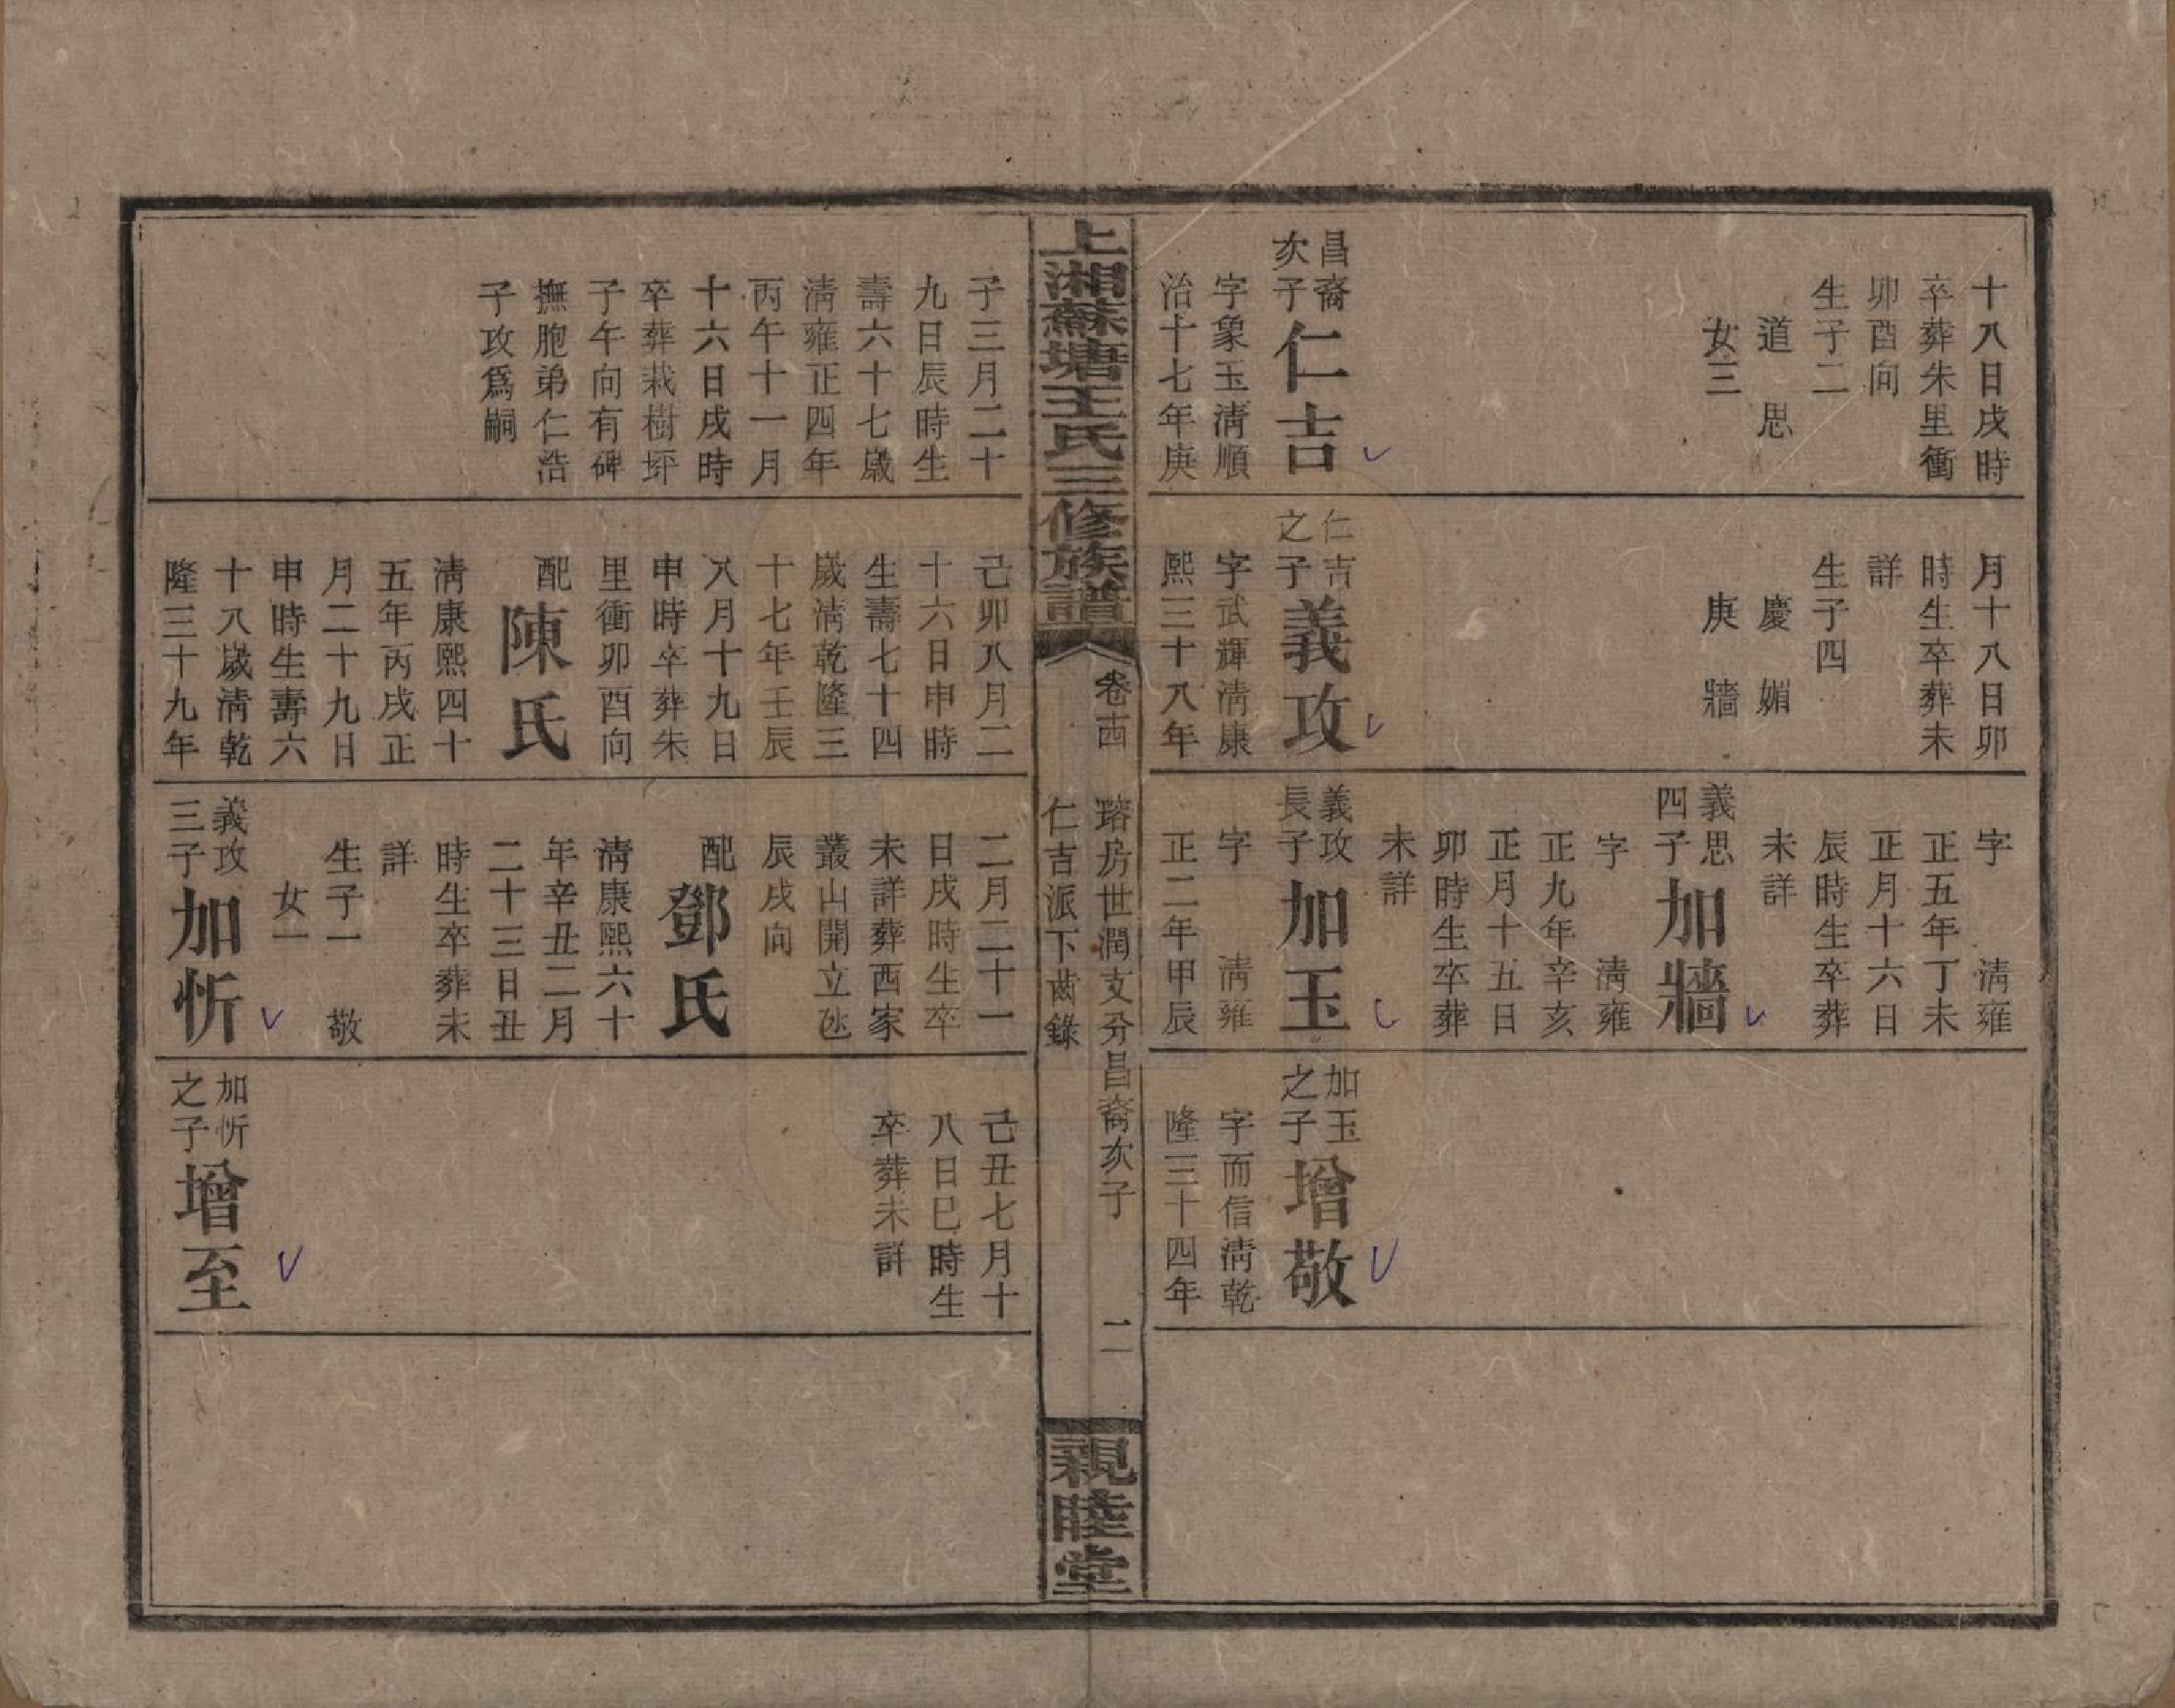 十八日戌時
卒葬朱里衝
卯酉向
生子二
道　思
女三
昌裔
次子
仁吉
字象玉淸順
治十七年庚
月十八日卯
時生卒葬未
詳
生子四
慶　媚
庚　牆
仁吉
之子
義攻
字武輝淸康
熙三十八年
字　　淸雍
正五年丁未
正月十六日
辰時生卒葬
未詳
義思
四子
加牆
字　　淸雍
正九年辛亥
正月十五日
卯時生卒葬
未詳
義攻
長子
加玉
字　　淸雍
正二年甲辰
加玉
之子
增敬
字而信淸乾
隆三十四年
上湘蘇塘王氏三修族譜
卷十四
瑹房世潤支分昌裔次子
仁吉派下齒錄
二
親睦堂
子三月二十
九日辰時生
壽六十七歲
淸雍正四年
丙午十一月
十六日戌時
卒葬栽樹坪
子午向有碑
撫胞弟仁浩
子攻爲嗣
己卯八月二
十六日申時
生壽七十四
歲淸乾隆三
十七年壬辰
八月十九日
申時卒葬朱
里衝卯酉向
配
陳氏
淸康熙四十
五年丙戌正
月二十九日
申時生壽六
十八歲淸乾
隆三十九年
二月二十一
日戌時生卒
未詳葬西家
叢山開立氹
辰戌向
配
鄧氏
淸康熙六十
年辛丑二月
二十三日丑
時生卒葬未
詳
生子一　敬
女一
義攻
三子
加忻
己丑七月十
八日巳時生
卒葬未詳
加忻
之子
增至